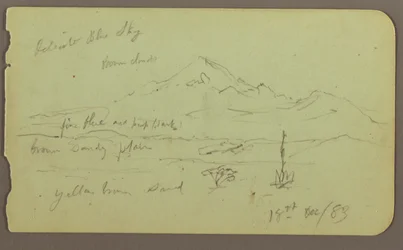 Delicate blue sky
brown clouds
fine blue and pink
brown sandy plain
yellow brown sand
19th Dec/83